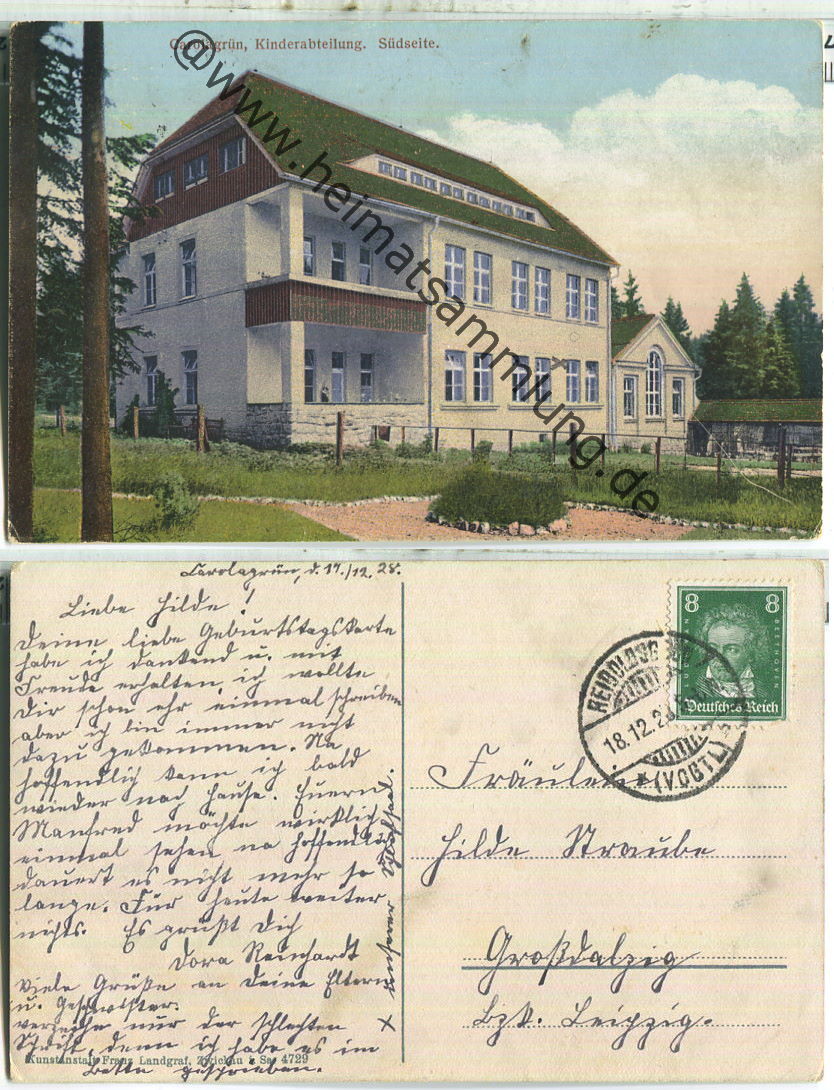 Carolagrün, Kinderabteilung. Südseite.
@www.heimatsammlung.de
Carolagrün, d. 17./12. 28.
Liebe Hilde!
Deine liebe Geburtstagskarte
habe ich dankend u. mit
Freude erhalten, ich wollte
Dir schon ehr einmal schreiben
aber ich bin immer nicht
dazu gekommen. Na
hoffendlich kann ich bald
wieder nach Hause. Euern
Manfred möchte wirklich
einmal sehen na hoffendlich
dauert es nicht mehr so
lange. Für heute weiter
nichts. Es grüßt Dich
Dora Reinhardt
Viele Grüße an Deine Eltern
u. Geschwister.
verzeihe nur der schlechten
Schrift, denn ich habe es im
Bette geschrieben.
X unserer
Kunstanstalt Franz Landgraf, Zwickau i. Sa. 4729
8 8
BEETHOVEN
Deutsches Reich
18.12.28
(VOGTL)
Fräulein
Hilde Straube
Großdalzig
Bzk. Leipzig.